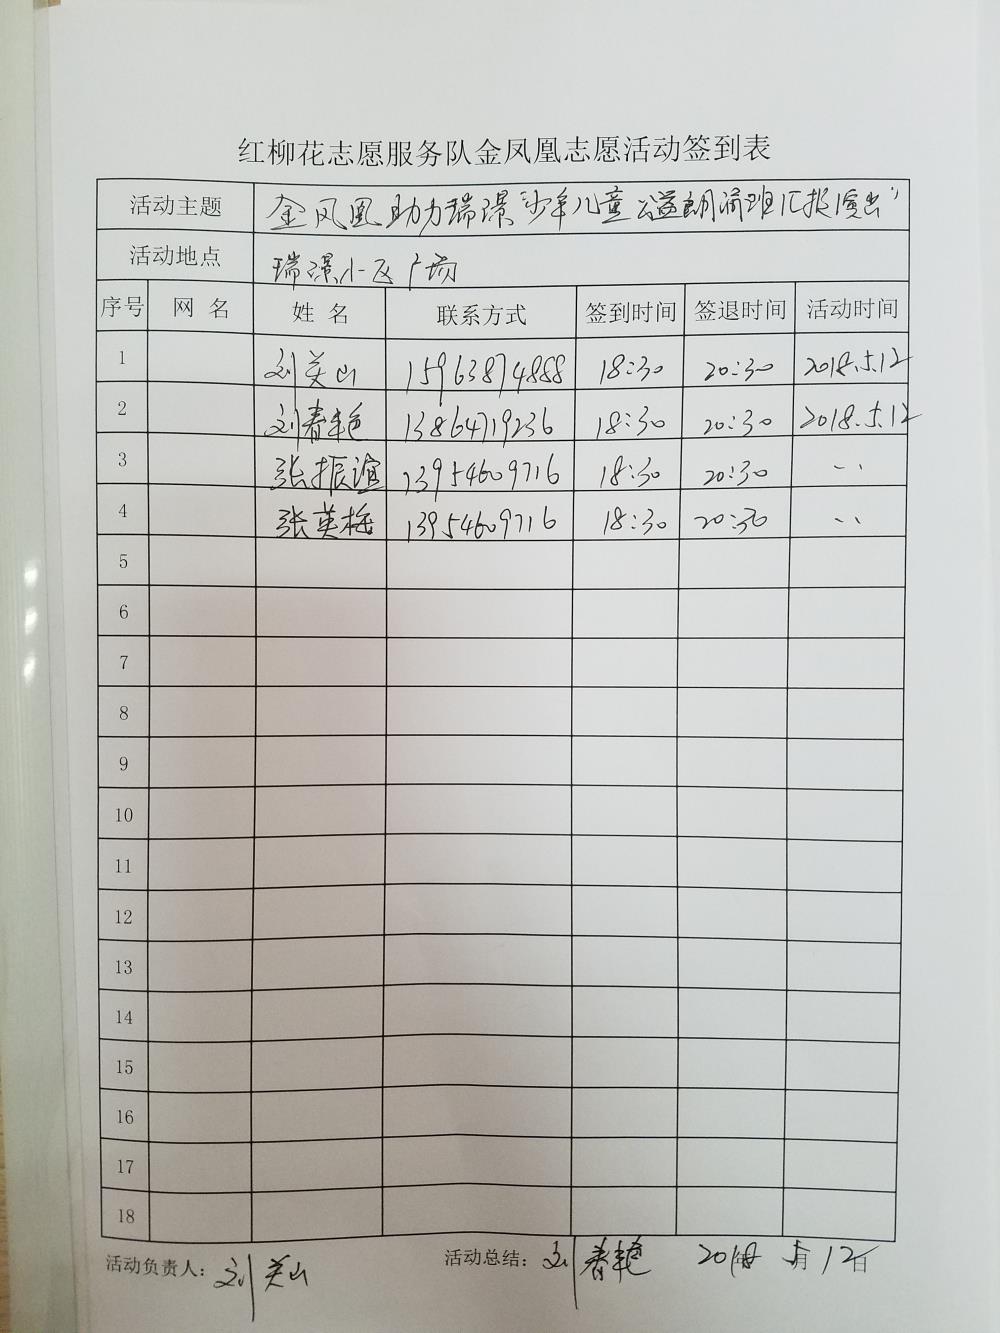 红柳花志愿服务队金凤凰志愿活动签到表
活动主题 金凤凰助力瑞璟“少年儿童公益朗诵班汇报演出”
活动地点 瑞璟小区广场
序号 网 名 姓 名 联系方式 签到时间 签退时间 活动时间
1 刘英山 15963874888 18:30 20:30 2018.5.12
2 刘春艳 13864719236 18:30 20:30 2018.5.12
3 张振谊 13954609716 18:30 20:30 、、
4 张英梅 13954609716 18:30 20:30 、、
5
6
7
8
9
10
11
12
13
14
15
16
17
18
活动负责人：刘英山 活动总结：刘春艳 2018年5月12日